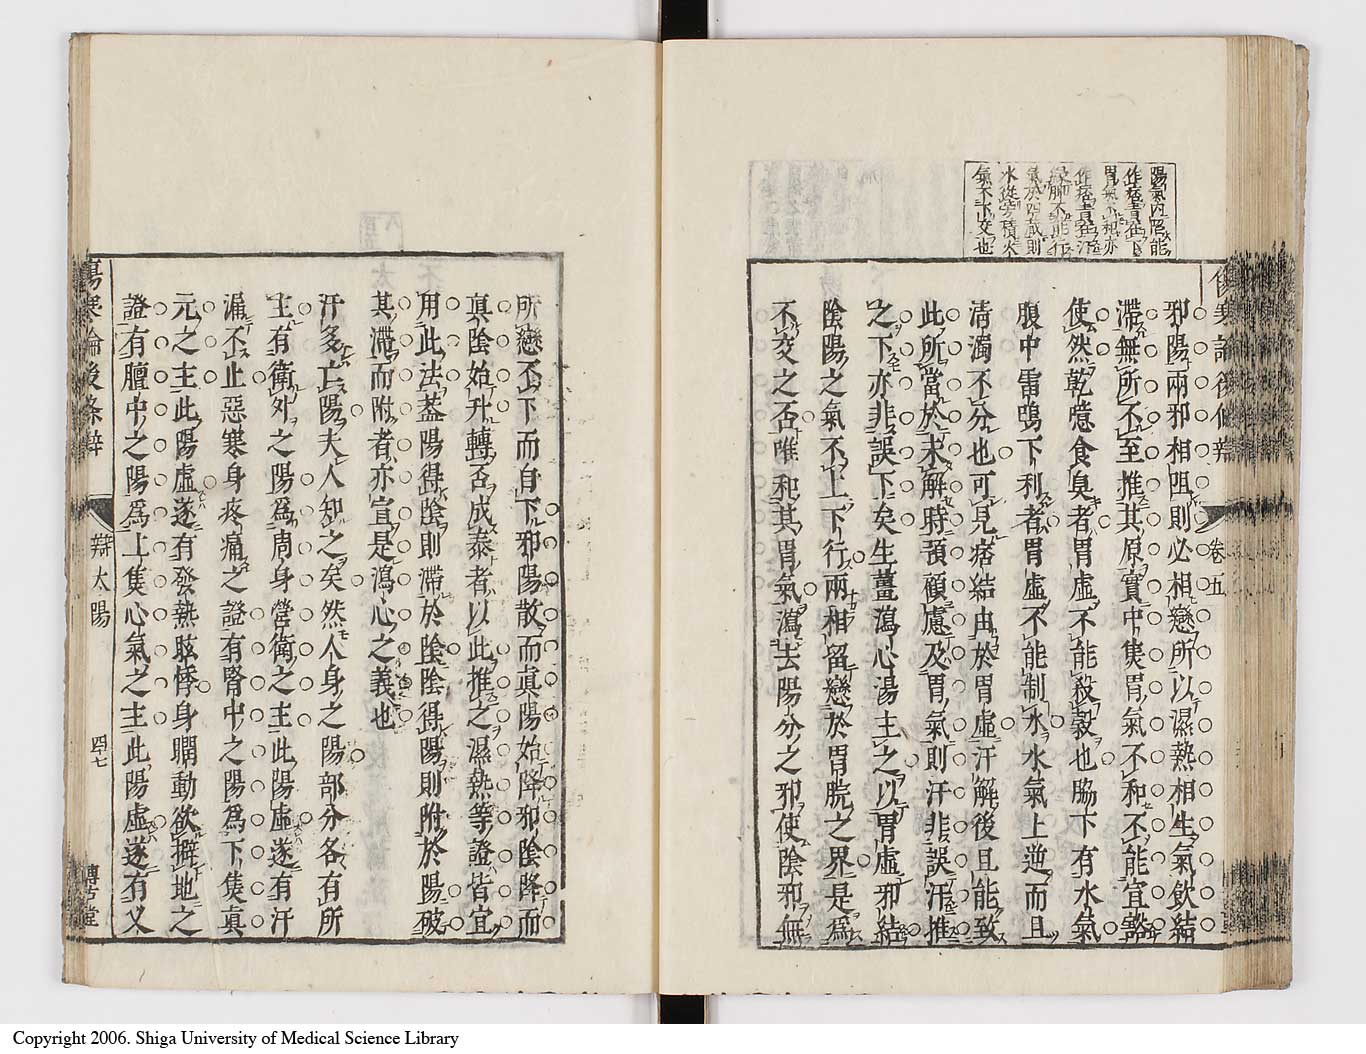 陽氣內陷能
作痞者在下
胃氣不和亦
作痞者在汗
氣於四藏則
水從旁積水
氣不下交也
傷寒論後條辨
卷五
邪陽兩邪相阻則必相戀所以濕熱相生氣飲結
滯無所不至推其原實中焦胃氣不和不能宣豁
使然乾噫食臭者胃虛不能殺穀也脇下有水氣
腹中雷鳴下利者胃虛不能制水水氣上逆而且
清濁不分也可見痞結由於胃虛汗解後且能致
此所當於未解時預顧慮及胃氣則汗非誤汗推
之下亦非誤下矣生薑瀉心湯主之以胃虛邪結
陰陽之氣不上下行兩相留戀於胃脘之界是爲
不交之否唯和其胃氣瀉去陽分之邪使陰邪無
所戀不下而自下邪陽散而真陽始降邪陰降而
真陰始升轉否成泰者以此推之濕熱等證皆宜
用此法蓋陽得陰則滯於陰陰得陽則附於陽破
其滯而附者亦宣是瀉心之義也
汗多亡陽夫人知之矣然人身之陽部分各有所
主有衛外之陽爲周身營衛之主此陽虛遂有汗
漏不止惡寒身疼痛之證有腎中之陽爲下焦真
元之主此陽虛遂有發熱眩悸身瞤動欲擗地之
證有膻中之陽爲上焦心氣之主此陽虛遂有叉
傷寒論後條辨
辨太陽
四七
博古堂
Copyright 2006. Shiga University of Medical Science Library